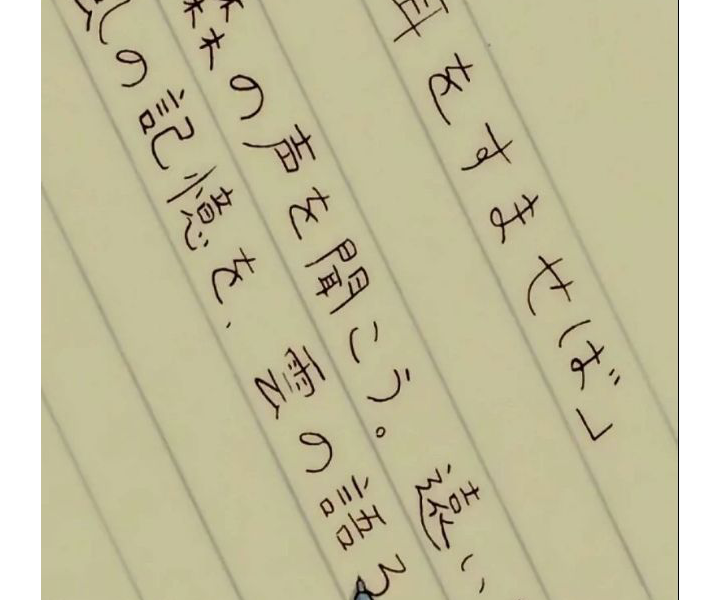 耳をすませば」
森の声を聞こう。遠い
の記憶を、雲の語る